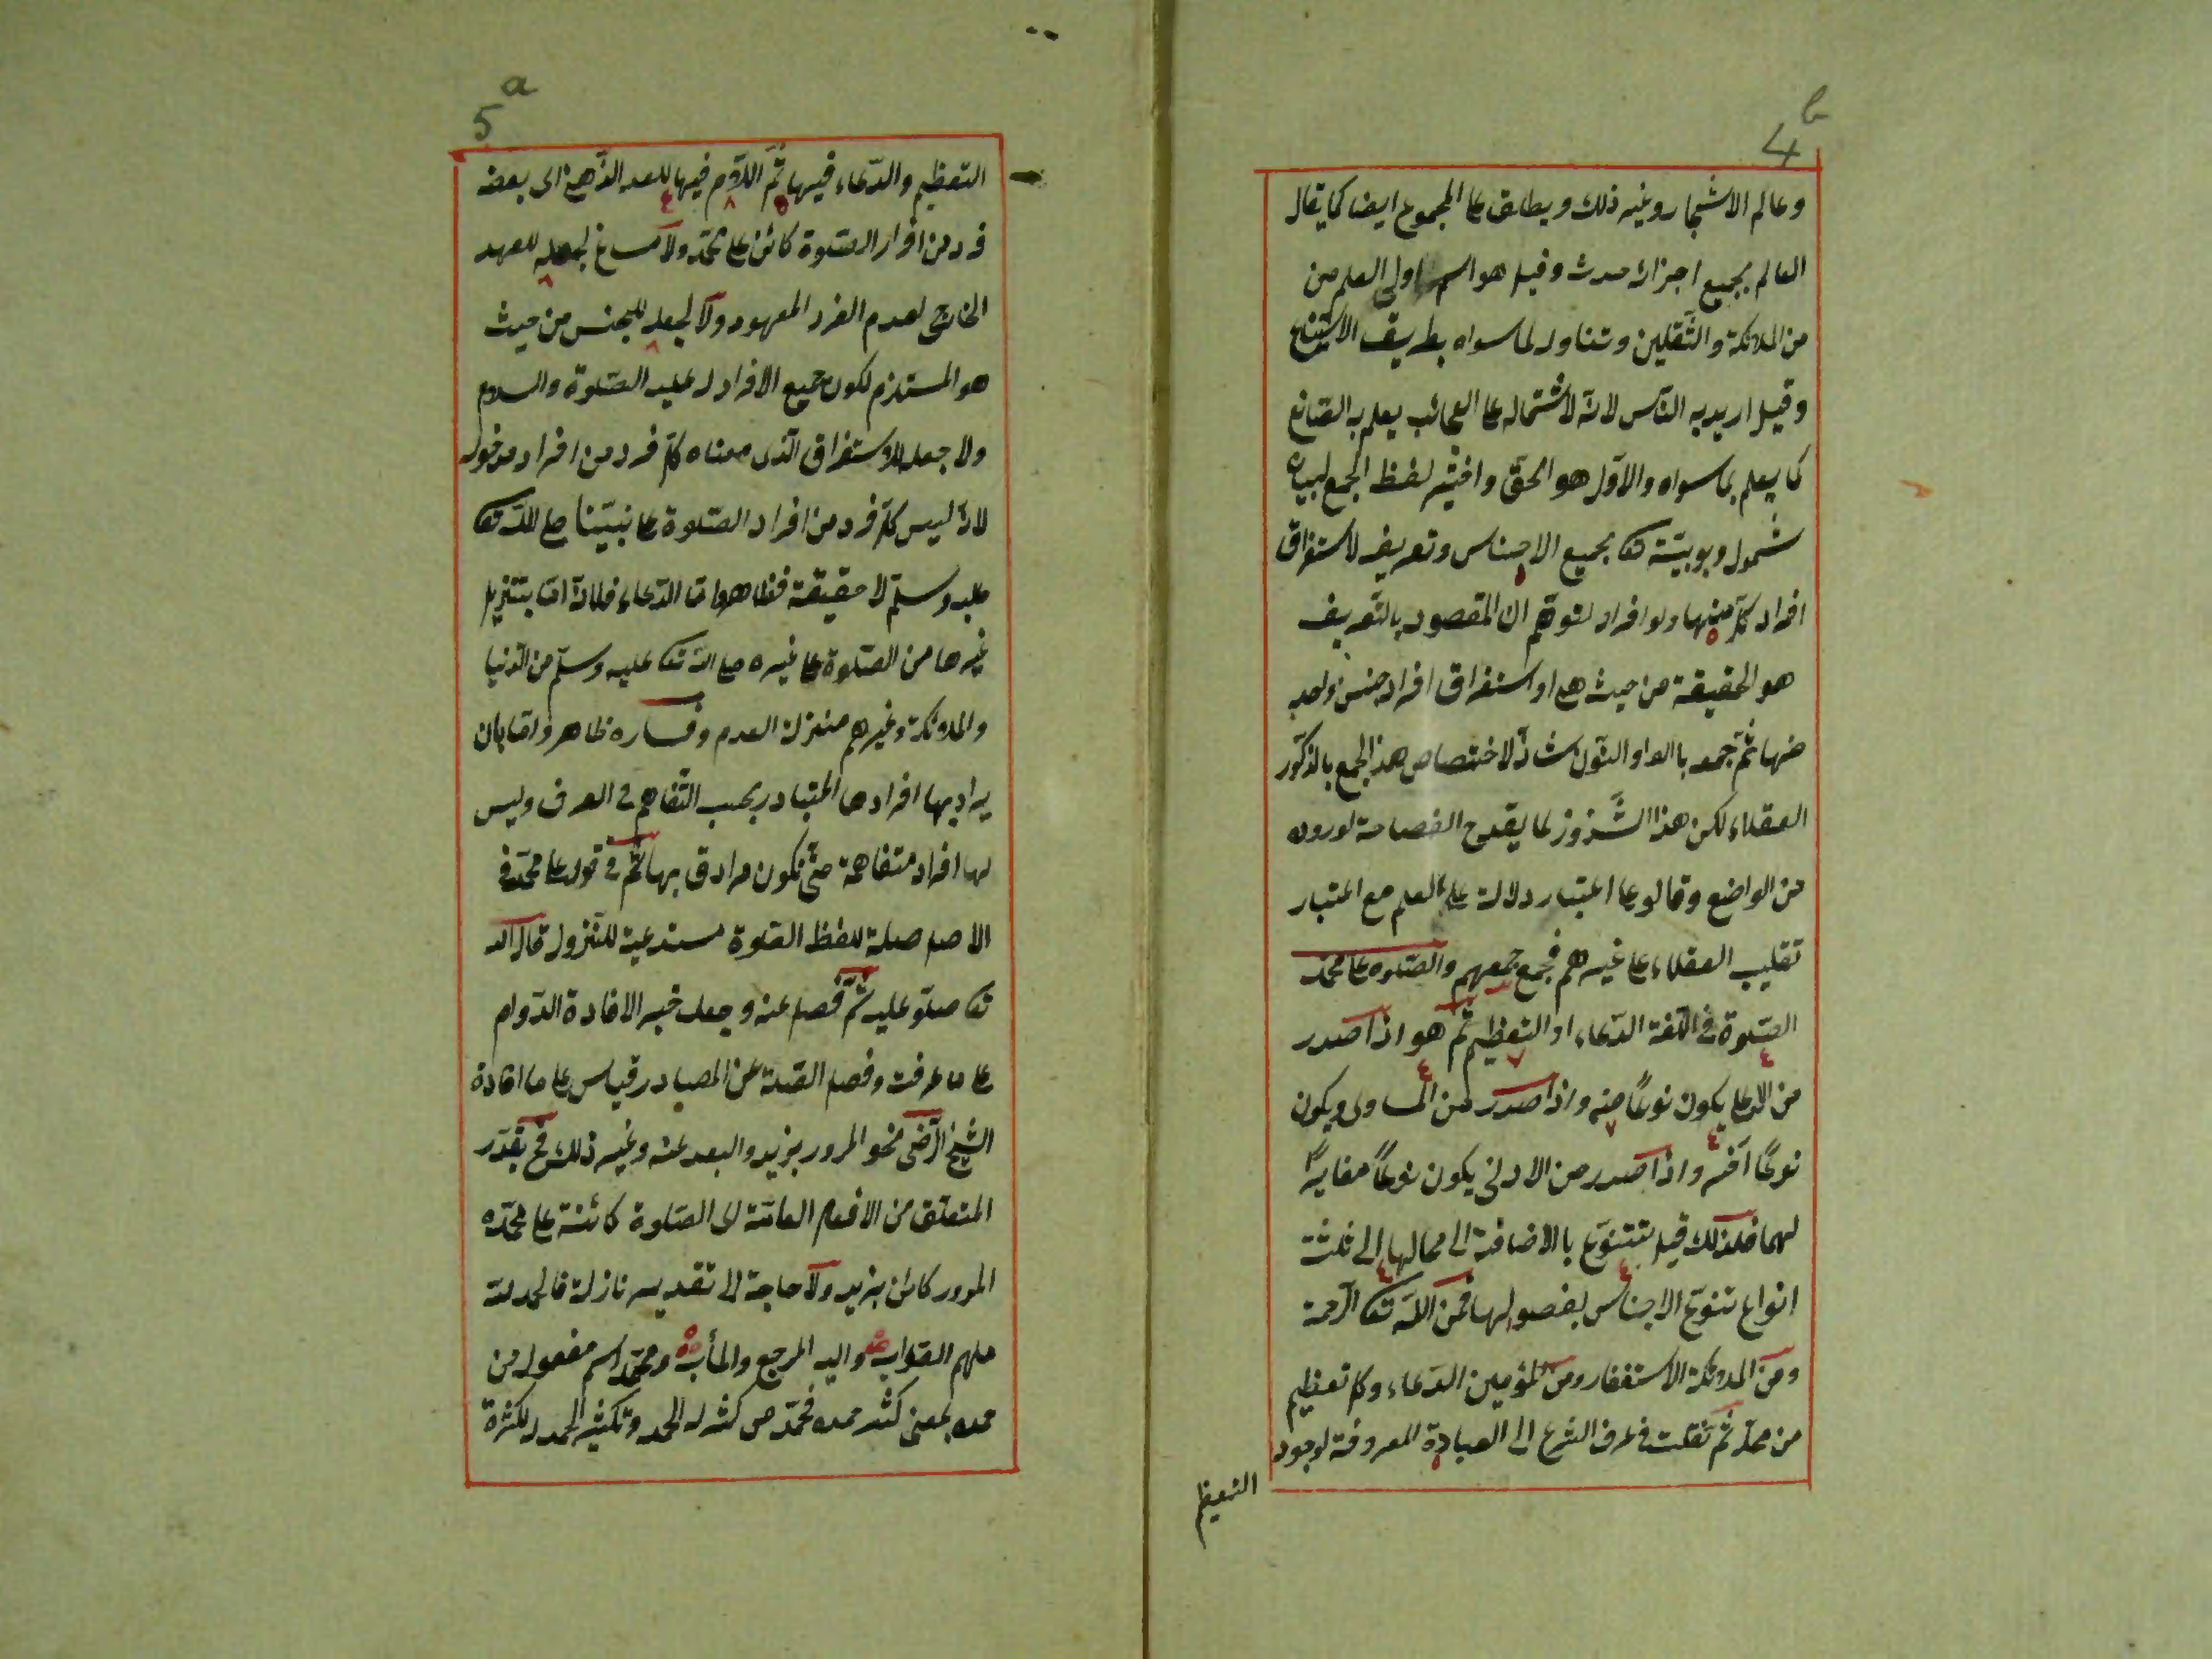 4 b
وعالم الاشجار وغيره ذلك ويطلق على المجموع ايضا كما يقال
العالم بجميع اجزائه محدث وقيل هو اسم اولى العلم من
من الملائكة والثّقلين وتناوله لما سواه بطريق الاستتباع
وقيل اريد به النّاس لانّه لاشتماله على العجائب يعلم به الصّانع
كما يعلم بما سواه والاوّل هو الحقّ واختير لفظ الجمع لبيان
شمول ربوبيّته تعا بجميع الاجناس وتعريفه لاستغراق
افراد كلّ منها ولو افراد لتوهّم ان المقصود بالتّعريف
هو الحقيقة من حيث هى او استغراق افراد جنس واحد
منها ثمّ جمعه باالواو والنّون شاذّ لاختصاص هذ الجمع بالذكور
العقلاء لكن هذا الشّزوز لما يقدح الفصاحة لوروده
من الواضع وقالو على اعتبار دلالته على العلم مع اعتبار
تقليب العقلاء على غيرهم فجمع جمعهم والصّلوة على محمّد
الصّلوة فى اللّغة الدّعاء او التعظيم ثمّ هو اذا صدر
من الاعلى يكون نوعًا منه واذا صدر من المساوى ويكون
نوعًا آخر واذا صدر من الادنى يكون نوعًا مغايرًا
لهما فلذلك قيل تتنوّع باالاضافة الى محالها الى ثلثة
انواع تنوّع الاجناس بفصولها فمن اللّه تعا الرّحمة
ومن الملائكة الاستغفار ومن المؤمين الدّعاء وكلم تعظيم
من محلّه ثمّ نقلت فى عرف الشرع الى العبادة المعروفة لوجود
التعظيم
5 a
التعظيم والدّعاء فيها ثمّ اللّام فيها للعهد الذّهنى اى بعضه
فرد من افراد الصّلوة كائن على محمّد ولا مساغ لجعله للعهد
الخارجى لعدم الفرد المعهود ولا لجعله للجنس من حيث
هو المستلزم لكون جميع الافراد له عليه الصّلوة والسلام
ولا جعله للاستغراق الّذى معناه كلّ فرد من افراد مدخوله
لانّه ليس كلّ فرد من افراد الصّلوة على نبيّنا صلى اللّه تعا
عليه وسلّم لا حقيقة فظاهر امّا الدّعاء فلانّه امّا بتنزيل
غيرها من الصّلوة على غيره صلى اللّه تعا عليه وسلّم من الدّنيا
والملائكة وغيرهم منزلة العدم وفساره ظاهر وامّا بان
يراد بها افرادها المتبادر بحسب التّفاهم فى العرف وليس
لها افراد متفاهمة حتّى تكون مرادة بها ثمّ فى قوله على محمّد فى
الاصل صلة للفظ الصّلوة مستدعية للنّزول قال اللّه
تعا صلّو عليه ثمّ فصل عنه وجعل خبر الافادة الدّوام
على ما عرفت وفصل الصّلة عن المصادر قياس على ما افادة
الشيخ الرّضى نحو المرور بزيد والبعد عنه وغير ذلك فح يقدّر
المتعلّق من الافعال العامّة اى الصّلوة كائنة على محمّده
المرور كائن بزيد ولا حاجة الا تقدير نازلة فالحمد للّه
ملهم الصّواب واليه المرجع والمأب ومحمّد اسم مفعول من
حمده بمعنى كثر حمده فمحمّد من كثر له الحمد وتكثير الحمد لكثرة